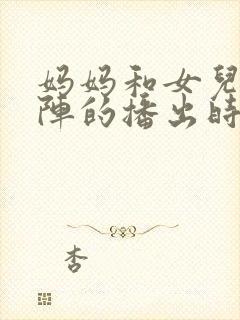 妈妈和女兒
陣的播出時
杏